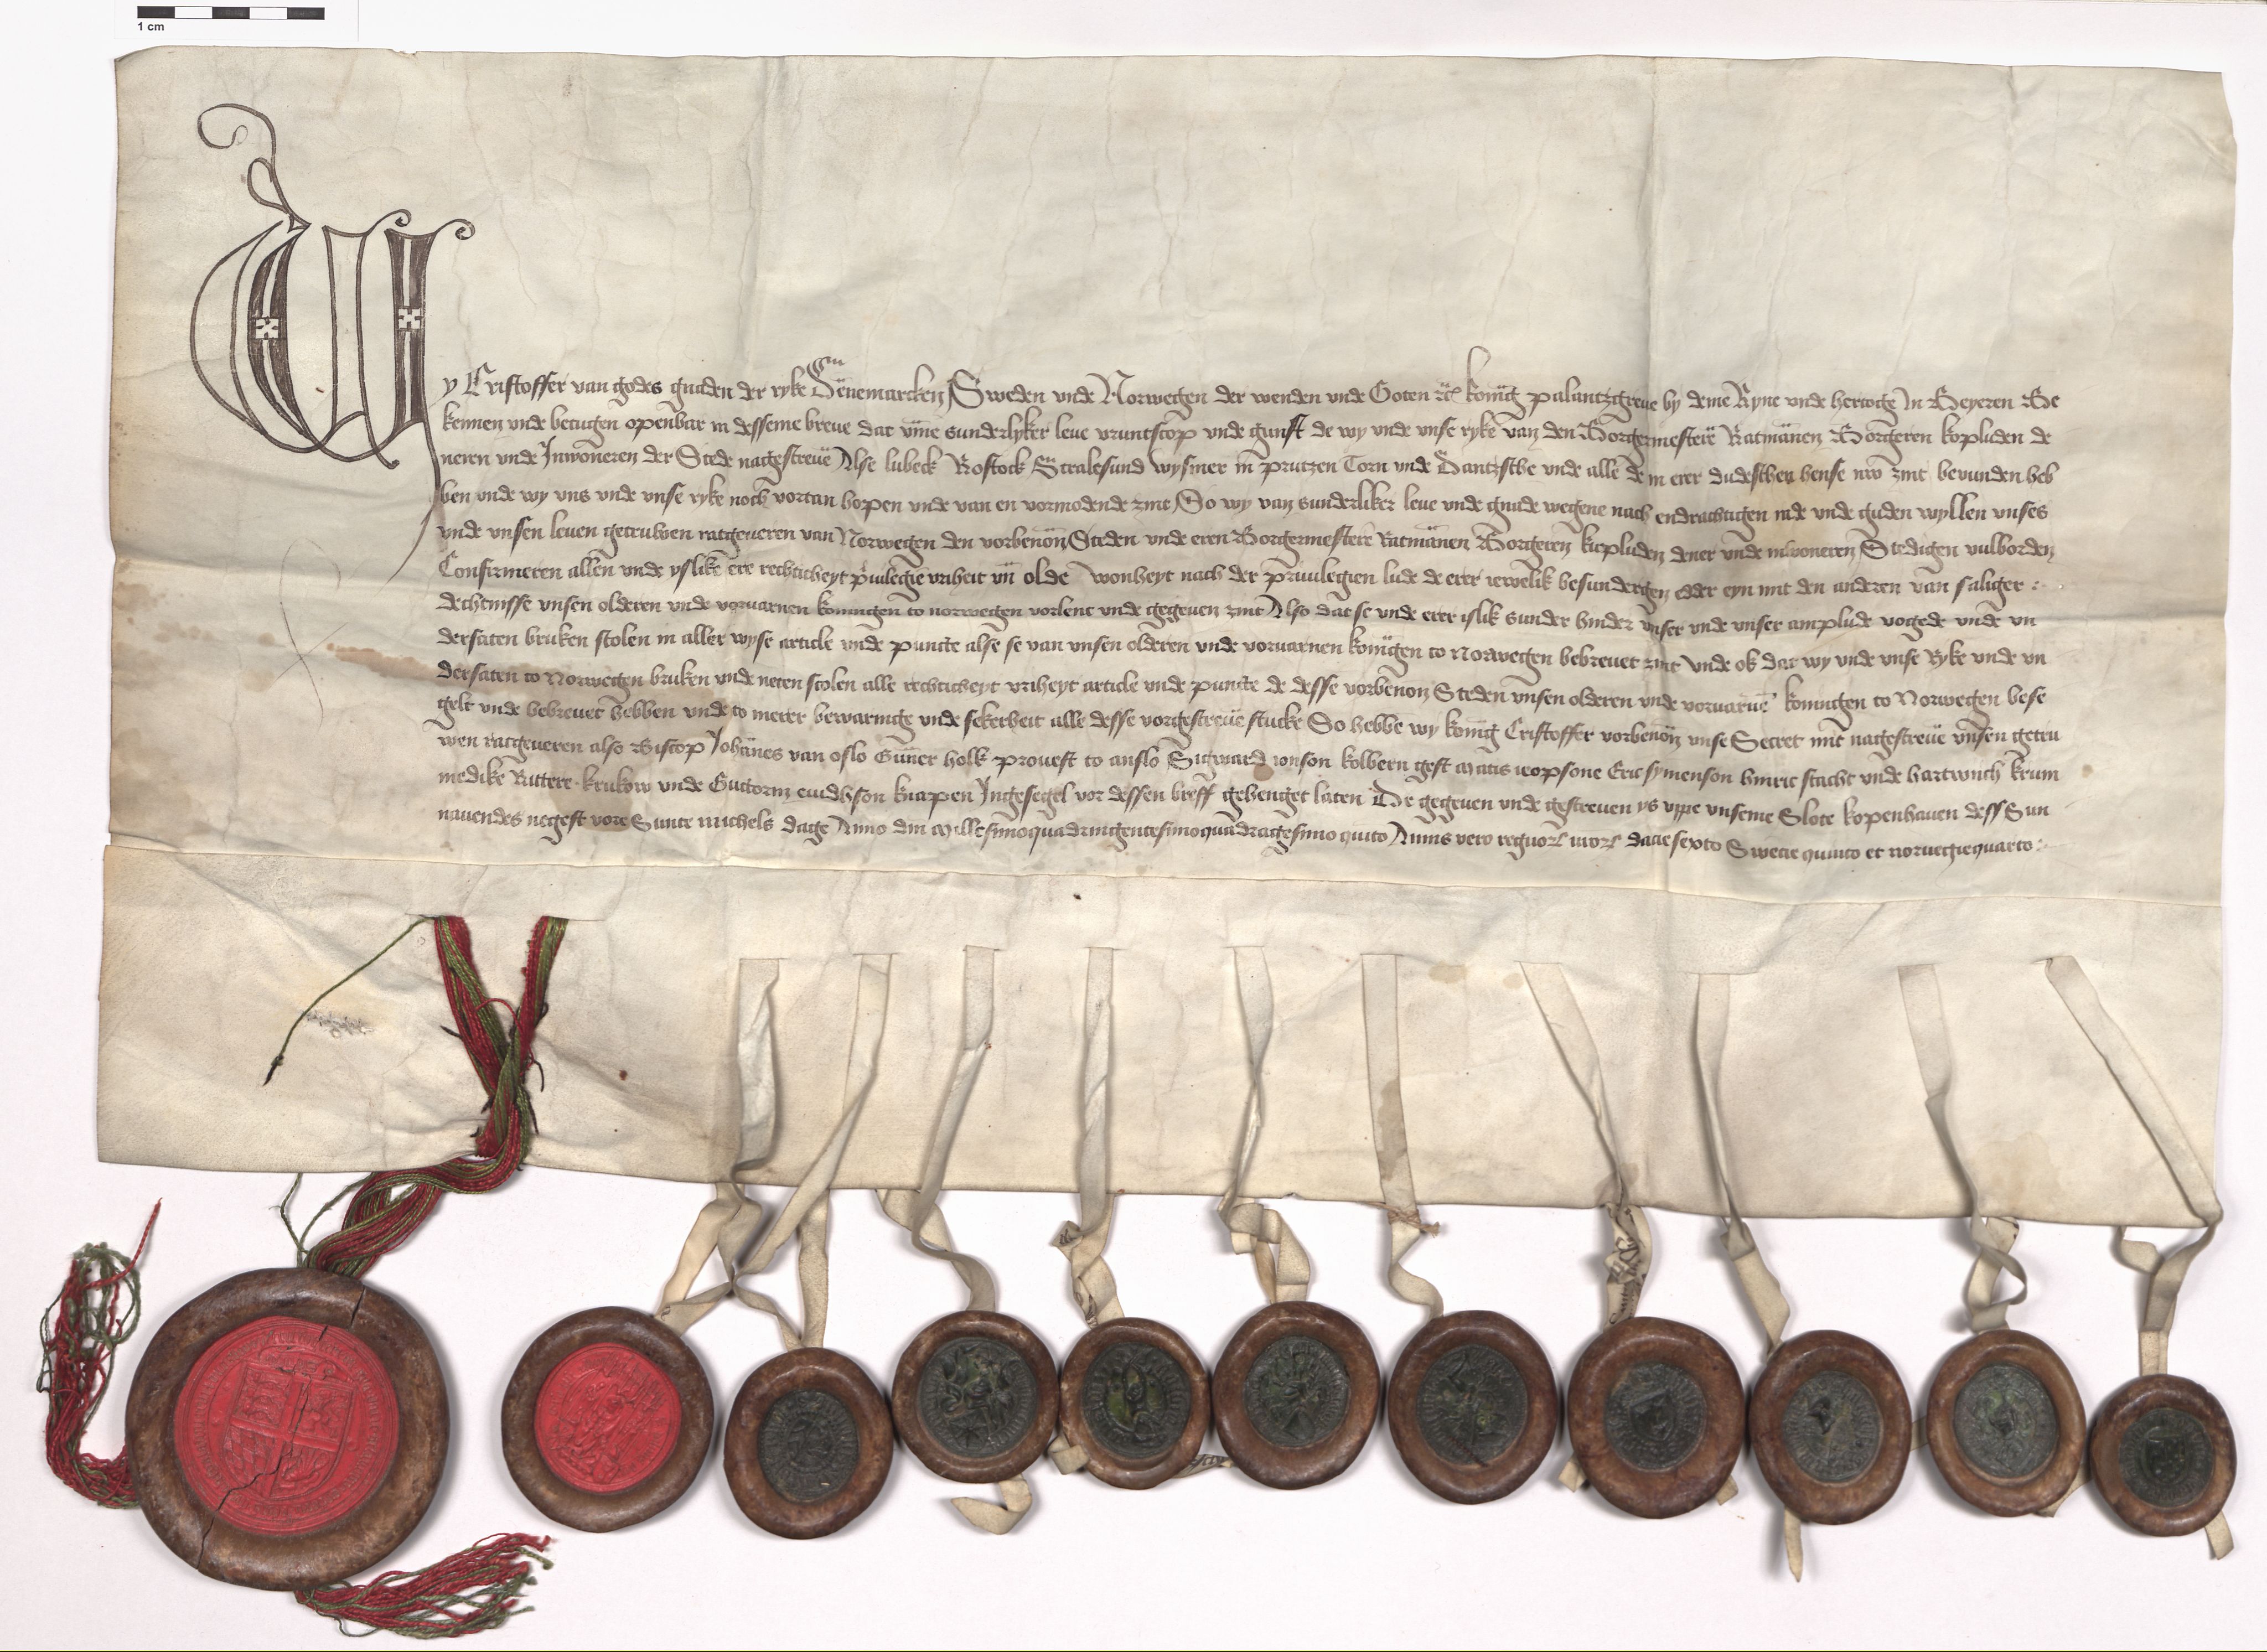 1 cm
Wy Cristoffer van godes gnaden der ryke Dēnemarcken Sweden vnde Norwegen der wenden vnde Goten ꝛc̄ konīg palantzgreue by demē Ryne vnde hertoge In Beyeren Be
kennen vnde betugen openbar in desseme breue dat vm̄e sunderlyker leue vruntscop vnde gunst de wy vnde vnse ryke van den Borgermesterē Ratmānen Borgeren kopluden de
neren vnde Inwoneren der Stede nagescreuē Alse lubeck Rostock Stralesund wysmer in prutzen Torn vnde Dantzsche vnde alle de in erer dudeschen hense nw zint bevunden heb
ben vnde wy vns vnde vnse ryke noch vortan hopen vnde van en vormodende zint So wy van sunderliker leue vnde gnade wegene nach endrachtigen rade vnde guden wyllen vnses
vnde vnsen leuen getruwen ratgeueren van Norwegen den vorbenōn Steden vnde eren Borgermesterē Ratmānen Borgeren kopluden dener vnde inwoneren Stedigen vulborden
Confirmeren allen vnde yslikē ere rechticheyt p̄uilegie vriheit vn̄ olde wonheyt nach der priuilegien lude de erer iewelik besundergen edder eyn mit den anderen van saliger
dechtnisse vnsen olderen vnde voruarnen koningen to norwegen vorlent vnde gegeuen zint Also dat se vnde erer islik sunder hinder vnser vnde vnser amplude vogede vnde vn
dersaten bruken scolen in aller wyse article vnde puncte alse se van vnsen olderen vnde voruarnen konīgen to Norwegen bebreuet zint vnde ok dat wy vnde vnse Ryke vnde vn
dersaten to Norwegen bruken vnde neten scolen alle rechticheyt vriheyt article vnde puncte de desse vorbenōn Steden vnsen olderen vnde voruarnē koningen to Norwegen bese
gelt vnde bebreuet hebben vnde to merer bewaringe vnde sekerheit alle desse vorgescreuē stucke So hebbe wy konīg Cristoffer vorbenōn vnse Secret mit nagescreuē vnsen getru
wen ratgeueren also Biscop Johānes van oslo Gūner holk prouest to anslo Sigward ionson kolbern gest Matis ieopsone Eric symenson hinric scacht vnde hartwich krum
medike Rittere krukow vnde Guttorm euidhson knapen Ingesegel vor dessen breff gehenget laten De gegeuen vnde gescreuen ys vppe vnseme Slote kopenhauen dess Sun
nauendes negest vore Sunte michels dage Anno dm̄ Millesimoquadringentesimoquadragesimo quīto Annis vero regnoꝝ nr̄oꝝ dacie sexto Swecie quinto et norwegie quarto